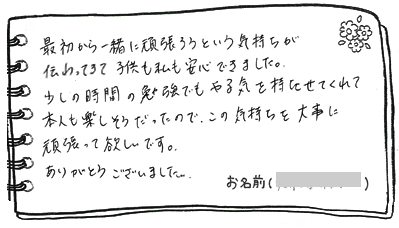 最初から一緒に頑張ろうという気持ちが
伝わってきて子供も私も安心できました。
少しの時間の勉強でもやる気を持たせてくれて
本人も楽しそうだったので、この気持ちを大事に
頑張って欲しいです。
ありがとうございました。
お名前( )